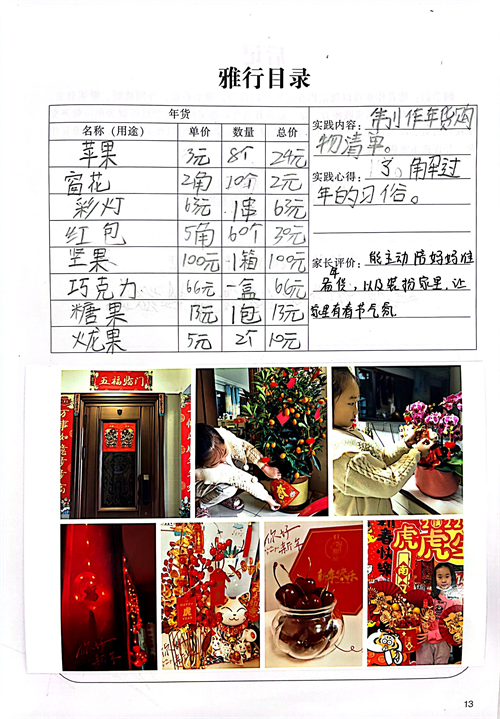 雅行目录
年货
名称（用途） 单价 数量 总价
苹果 3元 8个 24元
窗花 2角 10个 2元
彩灯 63元 1串 63元
红包 5角 60个 30元
坚果 100元 1箱 100元
巧克力 66元 一盒 66元
糖果 13元 1包 13元
火龙果 5元 2个 10元
实践内容：制作年货购
物清单。
实践心得：了解过
年的习俗。
家长评价：能主动陪妈妈准
备年货，以及装扮家里，让
家里有春节气氛
五福临门
春
虎
你好
新年
虎虎生
13